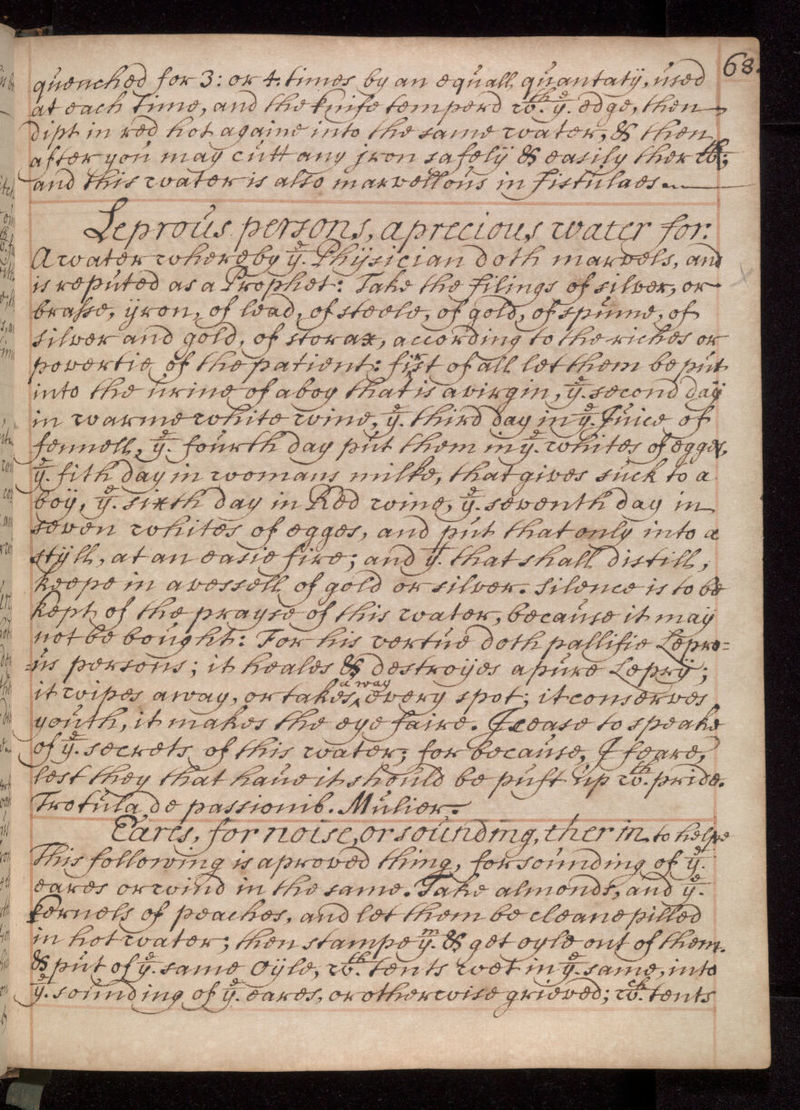 68.
quenched for 3: or 4. times by an equall quantaty, used
at each time, and the knife temperd wth. ye. edge, then
dipt in red hot againe into the same water, & then
after you may cutt any jron safely & easily ther wth:;
and this water is also marvellous in fistulaes.
Leprous persons, a precious water for:
A water whereby ye. Physician doth marvels, and
is reputed as a Prophet: Take the filings of silver, or
brasse, yron, of lead, of steele, of gold, of spume, of
silver and gold, of storax, according to the riches or
povertie of the patient: first of all let them be put
into the urine of a boy that is a virgin, ye. second day
in warme white wine, ye. third day in ye. Juice of
fennell, ye. fourth day put them in ye. whites of egges,
ye. fith day in womans milke, that gives suck to a
boy, ye. sixth day in Red wine, ye. seventh day in
seven whites of egges, and put that only into a
styll, at an easie fire; and yt. that shall distill,
keepe in a vessell of gold or silver. Silence is to be
kept of the prayse of this water, because it may
not be bought: For his vertue doth pallifie Lepro=
=us persons; it heales & destroyes a pure Lepry;
it wipes away, or takes away every spot; it conserves
youth, it makes the eye faire. I cease to speake
of ye. secrets of this water; for because, I feare,
lest they that haue it should be puft up wth. pride.
Trotula de passionib. Mulier.
Eares, for noise, or sounding, ther in to helpe
This following is aproved thing, for sounding of ye.
eares or wind in the same. Take almonds, and ye.
kernels of peaches, and let them be cleane pilled
in hot water; then stampe ym. & get oyle out of them.
& put of ye. same oyle, wth. tents wet in ye. same, into
ye. sounding of ye. eares, or otherwise grieved; wch. tents